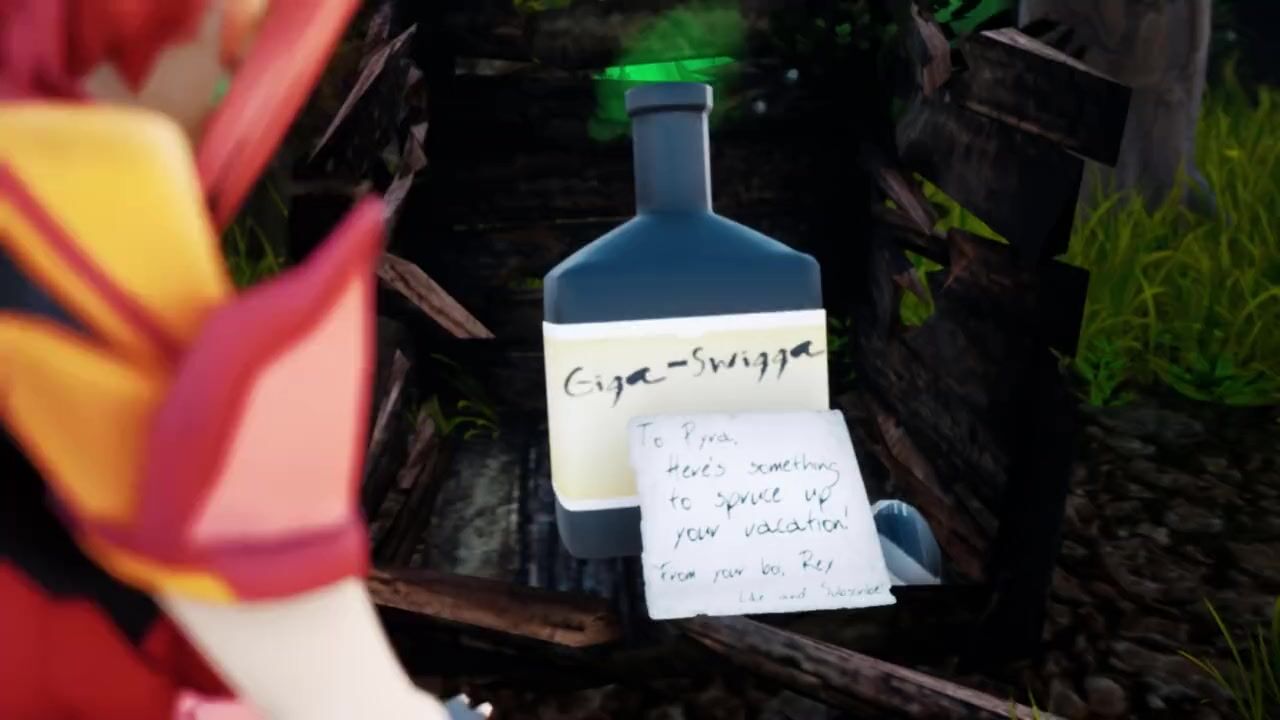 Giga-Swigga
To Pyra,
Here's something
to spruce up
your vacation!
From your boi, Rey
Like and Subscribe!